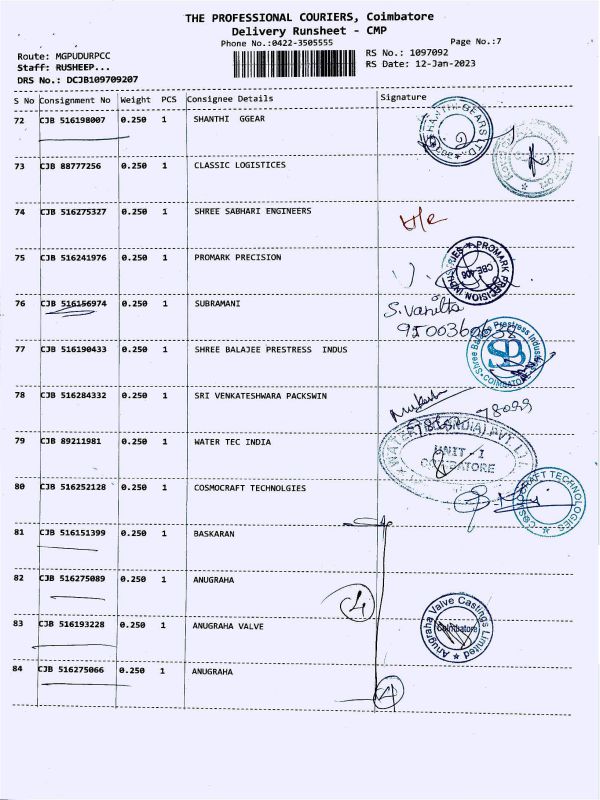 THE PROFESSIONAL COURIERS, Coimbatore
Delivery Runsheet - CMP
Phone No.:0422-3505555
Page No.:7
Route: MGPUDURPCC
RS No.: 1097092
Staff: RUSHEEP...
RS Date: 12-Jan-2023
DRS No.: DCJB109709207
S No Consignment No Weight PCS Consignee Details Signature
72 CJB 516198007 0.250 1 SHANTHI GGEAR
73 CJB 88777256 0.250 1 CLASSIC LOGISTICES
74 CJB 516275327 0.250 1 SHREE SABHARI ENGINEERS
75 CJB 516241976 0.250 1 PROMARK PRECISION
PROMARK PRECISION INDUSTRIES
CBE-406
76 CJB 516156974 0.250 1 SUBRAMANI
S. Vanitha
77 CJB 516190433 0.250 1 SHREE BALAJEE PRESTRESS INDUS
Shree Balajee Prestress Indus
SB
COIMBATORE
78 CJB 516284332 0.250 1 SRI VENKATESHWARA PACKSWIN
79 CJB 89211981 0.250 1 WATER TEC INDIA
UNIT - I
COIMBATORE
80 CJB 516252128 0.250 1 COSMOCRAFT TECHNOLGIES
COSMOCRAFT TECHNOLOGIES
81 CJB 516151399 0.250 1 BASKARAN
82 CJB 516275089 0.250 1 ANUGRAHA
4
83 CJB 516193228 0.250 1 ANUGRAHA VALVE
Anugraha Valve Castings Limited
Coimbatore
84 CJB 516275066 0.250 1 ANUGRAHA
4